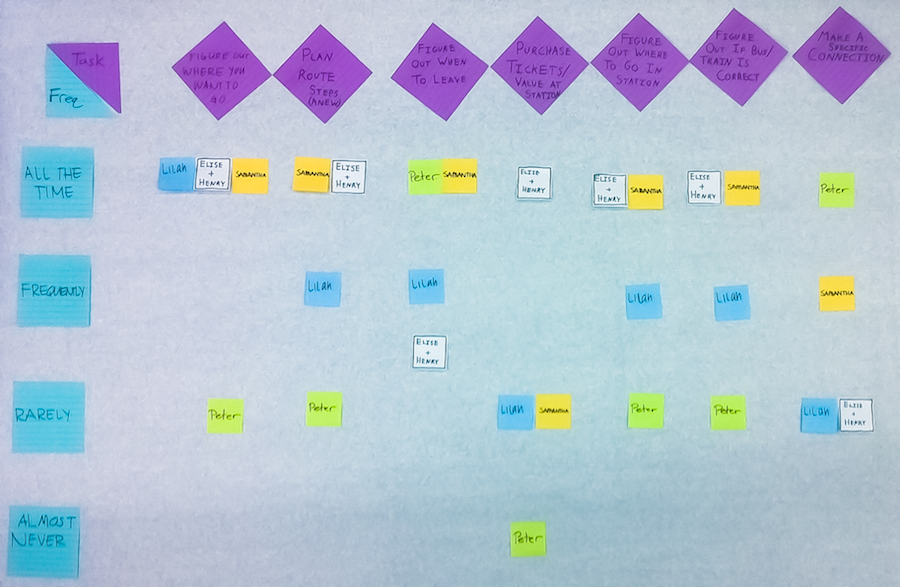 Task
Freq
FIGURE OUT
WHERE YOU
WANT TO
GO
PLAN
ROUTE
STEPS
(ANEW)
FIGURE
OUT WHEN
TO LEAVE
PURCHASE
TICKETS/
VALUE AT
STATION
FIGURE
OUT WHERE
TO GO IN
STATION
FIGURE
OUT IF BUS/
TRAIN IS
CORRECT
MAKE A
SPECIFIC
CONNECTION
ALL THE
TIME
Lilah
ELISE
+
HENRY
SAMANTHA
SAMANTHA
ELISE
+
HENRY
Peter
SAMANTHA
ELISE
+
HENRY
ELISE
+
HENRY
SAMANTHA
ELISE
+
HENRY
SAMANTHA
Peter
FREQUENTLY
Lilah
Lilah
Lilah
Lilah
SAMANTHA
ELISE
+
HENRY
RARELY
Peter
Peter
Lilah
SAMANTHA
Peter
Peter
Lilah
ELISE
+
HENRY
ALMOST
NEVER
Peter